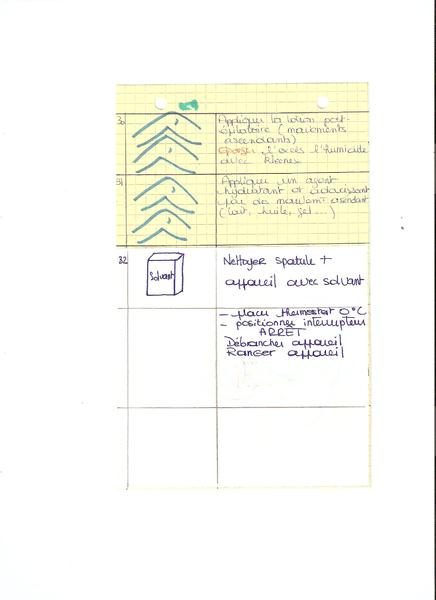 30
Appliquer la lotion post-
épilatoire (mouvements
ascendants)
éponger l'excès l'humidité
avec Kleenex
31
Appliquer un agent
hydratant et adoucissant
par des mouvemt ascendant
(lait, huile, gel...)
32
Solvant
Nettoyer spatule +
appareil avec solvant
- placer thermostat 0°C
- positionner interrupteur
ARRET
Débrancher appareil
Ranger appareil